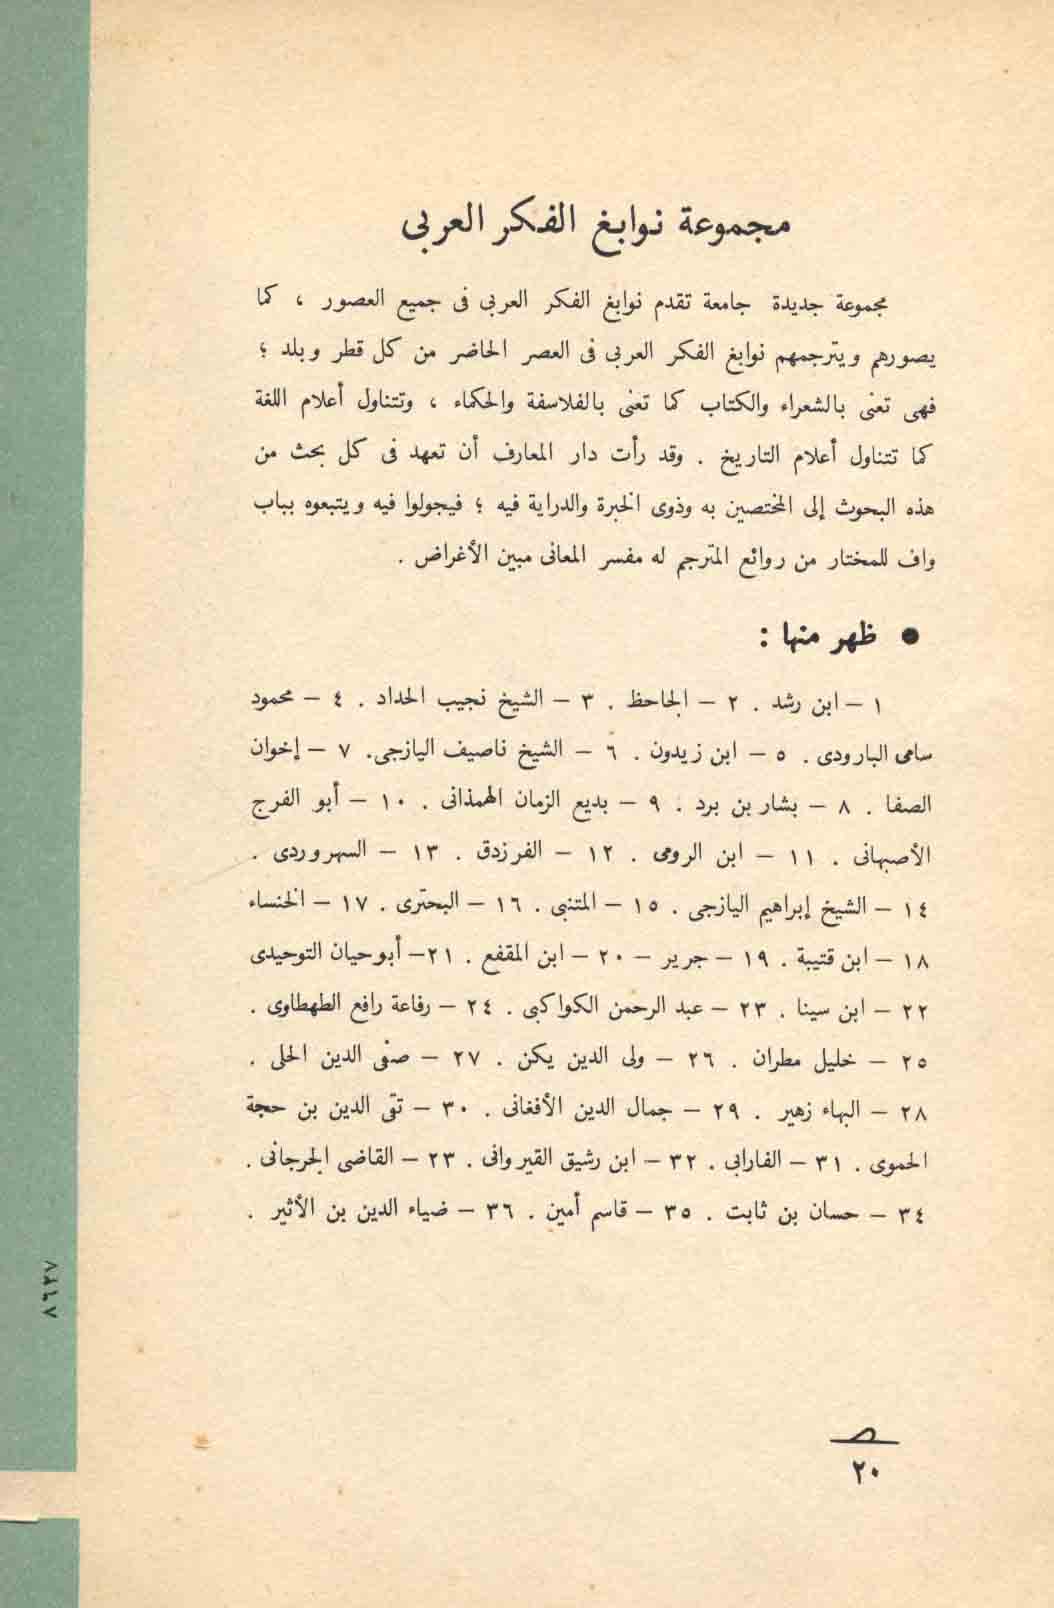 مجموعة نوابغ الفكر العربى
مجموعة جديدة جامعة تقدم نوابغ الفكر العربى فى جميع العصور ، كما
يصورهم ويترجمهم نوابغ الفكر العربى فى العصر الحاضر من كل قطر وبلد ؛
فهى تعنى بالشعراء والكتاب كما تعنى بالفلاسفة والحكماء ، وتتناول أعلام اللغة
كما تتناول أعلام التاريخ . وقد رأت دار المعارف أن تعهد فى كل بحث من
هذه البحوث إلى المختصين به وذوى الخبرة والدراية فيه ؛ فيجولوا فيه ويتبعوه بباب
واف للمختار من روائع المترجم له مفسر المعانى مبين الأغراض .
● ظهر منها :
١ – ابن رشد . ٢ – الجاحظ . ٣ – الشيخ نجيب الحداد . ٤ – محمود
سامى البارودى . ٥ – ابن زيدون . ٦ – الشيخ ناصيف اليازجى. ٧ – إخوان
الصفا . ٨ – بشار بن برد . ٩ – بديع الزمان الهمذانى . ١٠ – أبو الفرج
الأصبهانى . ١١ – ابن الرومى . ١٢ – الفرزدق . ١٣ – السهروردى .
١٤ – الشيخ إبراهيم اليازجى . ١٥ – المتنبى . ١٦ – البحترى . ١٧ – الخنساء
١٨ – ابن قتيبة . ١٩ – جرير – ٢٠ – ابن المقفع . ٢١– أبوحيان التوحيدى
٢٢ – ابن سينا . ٢٣ – عبد الرحمن الكواكبى . ٢٤ – رفاعة رافع الطهطاوى .
٢٥ – خليل مطران . ٢٦ – ولى الدين يكن . ٢٧ – صفى الدين الحلى .
٢٨ – البهاء زهير . ٢٩ – جمال الدين الأفغانى . ٣٠ – تقى الدين بن حجة
الحموى . ٣١ – الفارابى . ٣٢ – ابن رشيق القيروانى . ٢٣ – القاضى الجرجانى .
٣٤ – حسان بن ثابت . ٣٥ – قاسم أمين . ٣٦ – ضياء الدين بن الأثير .
٨٦٢٧
٢٠